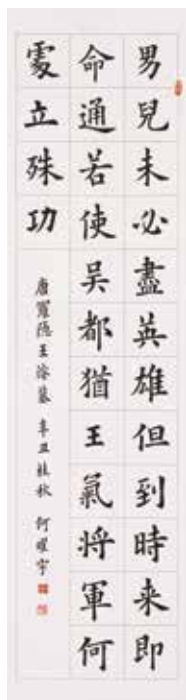 男兒未必盡英雄但到時来即
命通若使吴都猶王氣将軍何
處立殊功
唐羅隱王濬墓 辛丑桂秋 何曜宇